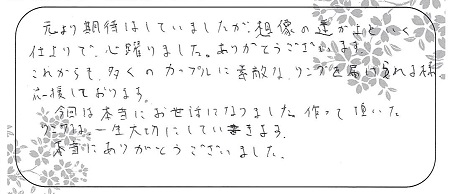 元より期待はしていましたが、想像の遥か上をいく
仕上りで、心躍りました。ありがとうございます。
これからも、多くのカップルに素敵なリングを届けられる様
応援しております。
今回は本当にお世話になりました。作って頂いた
リングは、一生大切にしていきます。
本当にありがとうございました。